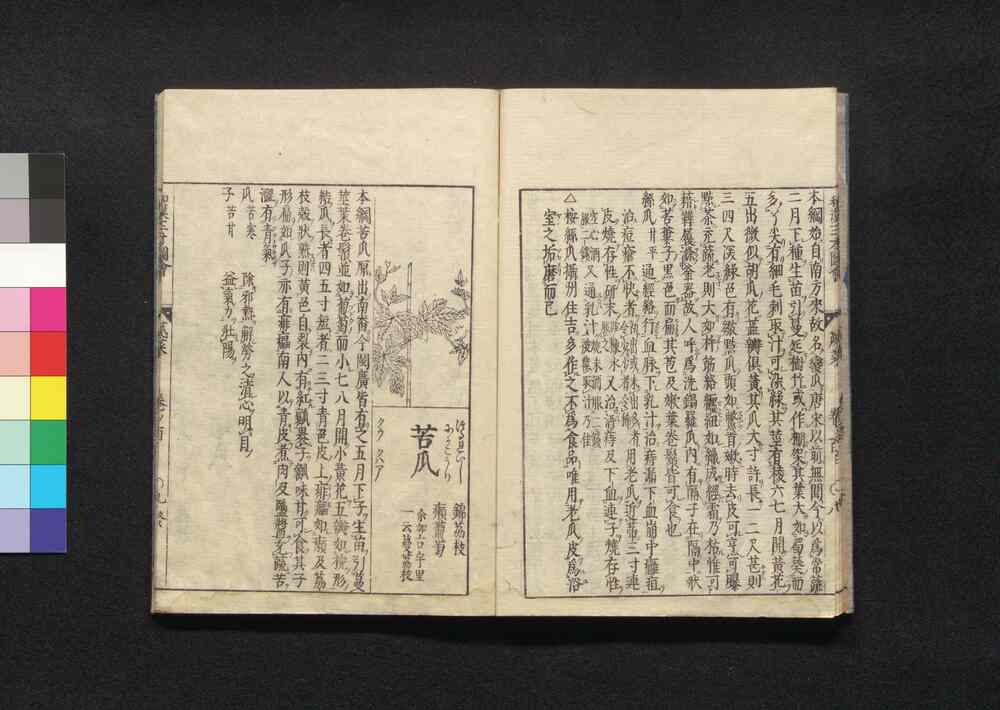 本綱始自南方來故名蠻瓜唐宋以前無聞今以為常蔬
二月下種生苗引蔓延樹竹或作棚架其葉大如蜀葵而
多丫尖有細毛刺取汁可染綠其莖有稜六七月開黃花
五出微似胡瓜花蕊瓣俱黃其瓜大寸許長一二尺甚則
三四尺深綠色有皺點瓜頭如鱉首嫩時去皮可烹可曝
點茶充蔬老則大如杵筋絡纏紐如織成經霜乃枯惟可
藉靴履滌釜器故人呼為洗鍋羅瓜內有隔子在隔中狀
如栝蔞子黑色而扁其苞及嫩葉卷鬚皆可食也
絲瓜甘平 通經絡行血脉下乳汁治痔漏下血崩中
治痘瘡不快者 用老瓜近蒂三寸連
皮燒存性研末 又治酒痔及下血連子燒存性
空心酒 又通乳汁
△按絲瓜攝州住吉多作之不為食品唯用老瓜皮為浴
室之垢磨而已
苦瓜
錦茘枝
癩葡萄
一云蔓茘枝
クウ クハア
本綱苦瓜原出南番今閩廣皆有之五月下子生苗引蔓
莖葉卷鬚並如葡萄而小七八月開小黃花五瓣如椀形
結瓜長者四五寸短者二三寸青色皮上痱癗如癩及茘
枝殼狀熟則黃色自裂內有紅瓤裹子瓤味甘可食其子
形扁如瓜子亦有痱癗南人以青皮煮肉及鹽醬充蔬苦
澀有青氣
瓜 苦寒 除邪熱解勞乏清心明目
子 苦甘 益氣力壯陽